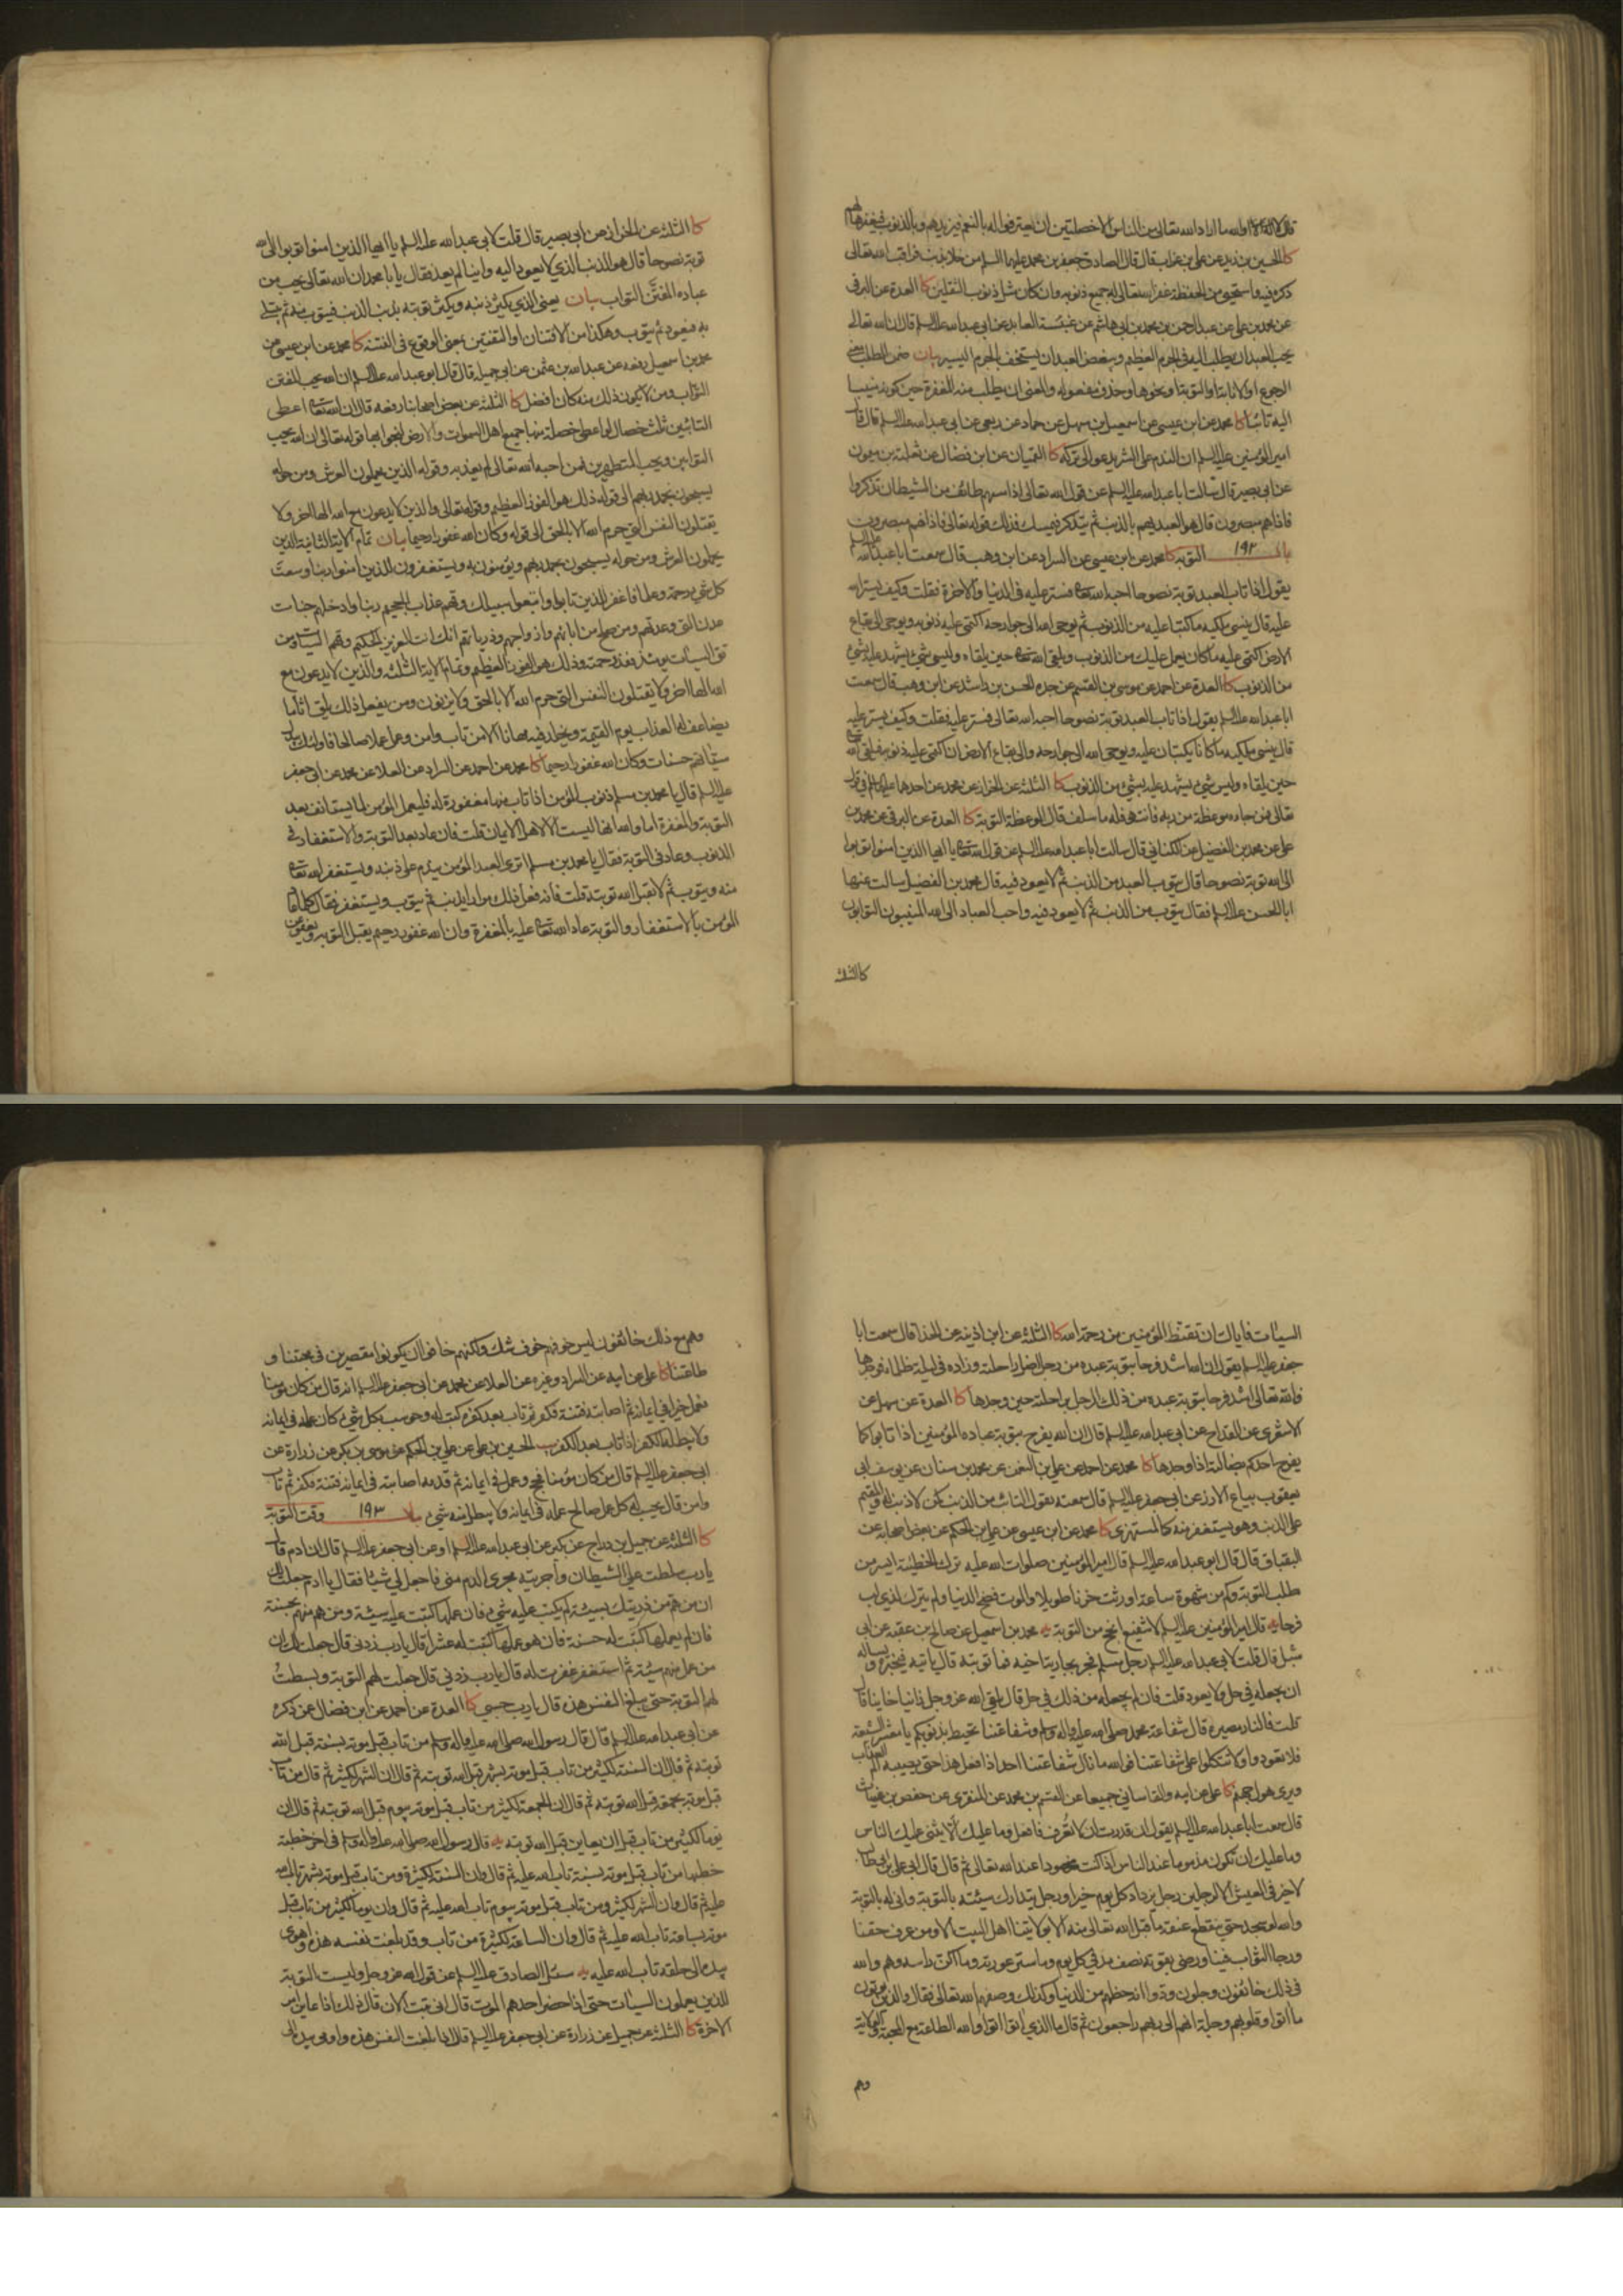 قال لا والله ما اراد الله تعالى من الناس الا خصلتين ان يعترفوا له بالنعم فيزيدهم وبالذنوب فيغفرها لهم
كا الحسين بن زيد عن علي بن غراب قال قال الصادق جعفر بن محمد عليهما السلم من خلا بذنب فراقب الله تعالى
ذكره فيه واستحيى من الحفظة غفر الله تعالى له جميع ذنوبه وان كان مثل ذنوب الثقلين كا العدة عن البرقي
عن محمد بن علي عن عبد الرحمن بن محمد بن ابي هاشم عن عنبسة العابد عن ابي عبد الله عليه السلم قال ان الله تعالى
يحب العبد ان يطلب اليه في الجرم العظيم ويبغض العبد ان يستخف بالجرم اليسير بيان ضمن الطلب معنى
الرجوع او الانابة او التوبة او نحوها وحذف مفعوله والمعنى ان يطلب منه المغفرة حين كونه منيبا
اليه تائبا كا محمد عن ابن عيسى عن اسمعيل بن سهل عن حماد عن ربعي عن ابي عبد الله عليه السلم قال قال
امير المؤمنين عليه السلم ان الندم على الشر يدعو الى تركه كا القميان عن ابن فضال عن ثعلبة بن ميمون
عن ابي بصير قال سالت ابا عبد الله عليه السلم عن قول الله تعالى اذا مسهم طائف من الشيطان تذكروا
فاذا هم مبصرون قال هو العبد يهم بالذنب ثم يتذكر فيمسك فذلك قوله تعالى فاذا هم مبصرون
باب ١٩٢ التوبة كا محمد عن ابن عيسى عن السراد عن ابن وهب قال سمعت ابا عبد الله عليه السلم
يقول اذا تاب العبد توبة نصوحا احبه الله تعالى فستر عليه في الدنيا والاخرة فقلت وكيف يستر الله
عليه قال ينسي ملكيه ما كتبا عليه من الذنوب ثم يوحي الله الى جوارحه اكتمي عليه ذنوبه ويوحي الى بقاع
الارض اكتمي عليه ما كان يعمل عليك من الذنوب ويلقى الله تعالى حين يلقاه وليس شيء يشهد عليه بشيء
من الذنوب كا العدة عن احمد عن موسى بن القسم عن جده الحسن بن راشد عن ابن وهب قال سمعت
ابا عبد الله عليه السلم يقول اذا تاب العبد توبة نصوحا احبه الله تعالى فستر عليه فقلت وكيف يستر عليه
قال ينسي ملكيه ما كانا يكتبان عليه ويوحي الله الى جوارحه والى بقاع الارض ان اكتمي عليه ذنوبه فيلقى الله تعالى
حين يلقاه وليس شيء يشهد عليه بشيء من الذنوب كا الثلثة عن الخراز عن محمد عن احدهما عليهما السلم في قول الله
تعالى فمن جاءه موعظة من ربه فانتهى فله ما سلف قال الموعظة التوبة كا العدة عن البرقي عن محمد بن
علي عن محمد بن الفضيل عن الكناني قال سالت ابا عبد الله عليه السلم عن قول الله تعالى يا ايها الذين امنوا توبوا
الى الله توبة نصوحا قال يتوب العبد من الذنب ثم لا يعود فيه قال محمد بن الفضيل سالت عنها
ابا الحسن عليه السلم فقال يتوب من الذنب ثم لا يعود فيه واحب العباد الى الله المنيبون التوابون
كا الثلثة
كا الثلثة عن الخراز عن ابي بصير قال قلت لابي عبد الله عليه السلم يا ايها الذين امنوا توبوا الى الله
توبة نصوحا قال هو الذنب الذي لا يعود اليه واينا لم يعد فقال يا با محمد ان الله تعالى يحب من
عباده المفتن التواب بيان يعني الذي يكثر ذنبه ويكثر توبته يذنب الذنب فيتوب منه ثم يبتلى
به فيعود ثم يتوب وهكذا من الافتتان او التفتين بمعنى الوقوع في الفتنة كا محمد عن ابن عيسى عن
محمد بن اسمعيل رفعه عن عبد الله بن عثمن عن ابي جميلة قال قال ابو عبد الله عليه السلم ان الله يحب المفتن
التواب ومن لا يكون ذلك منه كان افضل كا الثلثة عن بعض اصحابنا رفعه قال ان الله تعالى اعطى
التائبين ثلث خصال لو اعطي خصلة منها جميع اهل السموات والارض لنجوا بها قوله تعالى ان الله يحب
التوابين ويحب المتطهرين فمن احبه الله تعالى لم يعذبه وقوله الذين يحملون العرش ومن حوله
يسبحون بحمد ربهم الى قوله ذلك هو الفوز العظيم وقوله تعالى والذين لا يدعون مع الله الها اخر ولا
يقتلون النفس التي حرم الله الا بالحق الى قوله وكان الله غفورا رحيما بيان تمام الاية الثانية الذين
يحملون العرش ومن حوله يسبحون بحمد ربهم ويؤمنون به ويستغفرون للذين امنوا ربنا وسعت
كل شيء رحمة وعلما فاغفر للذين تابوا واتبعوا سبيلك وقهم عذاب الجحيم ربنا وادخلهم جنات
عدن التي وعدتهم ومن صلح من ابائهم وازواجهم وذرياتهم انك انت العزيز الحكيم وقهم السيئات ومن
تق السيئات يومئذ فقد رحمته وذلك هو الفوز العظيم وتمام الاية الثلثة والذين لا يدعون مع
الله الها اخر ولا يقتلون النفس التي حرم الله الا بالحق ولا يزنون ومن يفعل ذلك يلق اثاما
يضاعف له العذاب يوم القيمة ويخلد فيه مهانا الا من تاب وامن وعمل عملا صالحا فاولئك يبدل الله
سيئاتهم حسنات وكان الله غفورا رحيما كا محمد عن احمد عن السراد عن العلا عن محمد عن ابي جعفر
عليه السلم قال يا محمد بن مسلم ذنوب المؤمن اذا تاب منها مغفورة له فليعمل المؤمن لما يستانف بعد
التوبة والمغفرة اما والله انها ليست الا لاهل الايمان قلت فان عاد بعد التوبة والاستغفار في
الذنوب وعاد في التوبة فقال يا محمد بن مسلم اترى العبد المؤمن يندم على ذنبه ويستغفر الله تعالى
منه ويتوب ثم لا يقبل الله توبته قلت فانه فعل ذلك مرارا يذنب ثم يتوب ويستغفر فقال كلما عاد
المؤمن بالاستغفار والتوبة عاد الله تعالى عليه بالمغفرة وان الله غفور رحيم يقبل التوبة ويعفو عن
السيئات فاياك ان تقنط المؤمنين من رحمة الله كا الثلثة عن ابن اذينة عن الحذا قال سمعت ابا
جعفر عليه السلم يقول ان الله اشد فرحا بتوبة عبده من رجل اضل راحلته وزاده في ليلة ظلماء فوجدها
فالله تعالى اشد فرحا بتوبة عبده من ذلك الرجل براحلته حين وجدها كا العدة عن سهل عن
الاشعري عن القداح عن ابي عبد الله عليه السلم قال ان الله يفرح بتوبة عباده المؤمنين اذا تابوا كما
يفرح احدكم بضالته اذا وجدها كا محمد عن احمد عن علي بن النعمن عن محمد بن سنان عن يوسف ابي
يعقوب بياع الارز عن ابي جعفر عليه السلم قال سمعته يقول التائب من الذنب كمن لا ذنب له والمقيم
على الذنب وهو يستغفر منه كالمستهزئ كا محمد عن ابن عيسى عن علي بن الحكم عن بعض اصحابه عن
البقباق قال قال ابو عبد الله عليه السلم قال امير المؤمنين صلوات الله عليه ترك الخطيئة ايسر من
طلب التوبة وكم من شهوة ساعة اورثت حزنا طويلا والموت فضح الدنيا ولم يترك لذي لب
فرحا يه قال امير المؤمنين عليه السلم لا شفيع انجح من التوبة يه محمد بن اسمعيل عن صالح بن عقبة عن ابي
شبل قال قلت لابي عبد الله عليه السلم رجل مسلم فجر بجارية اخيه فما توبته قال ياتيه فيخبره ويساله
ان يجعله في حل ولا يعود قلت فان لم يجعله من ذلك في حل قال يلقى الله عز وجل زانيا خاينا قال
قلت فالنار مصيره قال شفاعة محمد صلى الله عليه واله وسلم وشفاعتنا تحيط بذنوبكم يا معشر الشيعة
فلا تعودوا ولا تتكلوا على شفاعتنا فوالله ما ينال شفاعتنا احد اذا فعل هذا حتى يصيبه الم العذاب
ويرى هول جهنم كا علي عن ابيه والقاساني جميعا عن القسم بن محمد عن المنقري عن حفص بن غياث
قال سمعت ابا عبد الله عليه السلم يقول ان قدرت ان لا تعرف فافعل وما عليك الا يثني عليك الناس
وما عليك ان تكون مذموما عند الناس اذا كنت محمودا عند الله تعالى ثم قال قال ابي علي بن ابي طالب
لا خير في العيش الا لرجلين رجل يزداد كل يوم خيرا ورجل يتدارك سيئته بالتوبة وانى له بالتوبة
والله لو سجد حتى ينقطع عنقه ما قبل الله تعالى منه الا بولايتنا اهل البيت الا ومن عرف حقنا
ورجا الثواب فينا ورضي بقوته نصف مد في كل يوم وما ستر عورته وما اكن راسه وهم والله
في ذلك خائفون وجلون ودوا انه حظهم من الدنيا وكذلك وصفهم الله تعالى فقال والذين يؤتون
ما اتوا وقلوبهم وجلة انهم الى ربهم راجعون ثم قال ما الذي اتوا اتوا والله الطاعة مع المحبة والولاية
وهم
وهم مع ذلك خائفون ليس خوفهم خوف شك ولكنهم خافوا ان يكونوا مقصرين في محبتنا و
طاعتنا كا علي عن ابيه عن السراد وغيره عن العلا عن محمد عن ابي جعفر عليه السلم انه قال من كان مؤمنا
فعمل خيرا في ايمانه ثم اصابته فتنة فكفر ثم تاب بعد كفره كتب له وحوسب بكل شيء كان عمله في ايمانه
ولا يبطله الكفر اذا تاب بعد الكفر يب الحسين بن علي عن علي بن الحكم عن موسى بن بكر عن زرارة عن
ابي جعفر عليه السلم قال من كان مؤمنا فحج وعمل في ايمانه ثم قد اصابته في ايمانه فتنة فكفر ثم تاب
وامن قال يحسب له كل عمل صالح عمله في ايمانه ولا يبطل منه شيء باب ١٩٣ وقت التوبة
كا الثلثة عن جميل بن دراج عن بكير عن ابي عبد الله عليه السلم او عن ابي جعفر عليه السلم قال ان ادم قال
يا رب سلطت علي الشيطان واجريته مجرى الدم مني فاجعل لي شيئا فقال يا ادم جعلت لك
ان من هم من ذريتك بسيئة لم يكتب عليه شيء فان عملها كتبت عليه سيئة ومن هم منهم بحسنة
فان لم يعملها كتبت له حسنة فان هو عملها كتبت له عشرا قال يا رب زدني قال جعلت لك ان
من عمل منهم سيئة ثم استغفر غفرت له قال يا رب زدني قال جعلت لهم التوبة وبسطت
لهم التوبة حتى يبلغ النفس هذه قال يا رب حسبي كا العدة عن احمد عن ابن فضال عمن ذكره
عن ابي عبد الله عليه السلم قال قال رسول الله صلى الله عليه واله وسلم من تاب قبل موته بسنة قبل الله
توبته ثم قال ان السنة لكثير من تاب قبل موته بشهر قبل الله توبته ثم قال ان الشهر لكثير ثم قال من تاب
قبل موته بجمعة قبل الله توبته ثم قال ان الجمعة لكثير من تاب قبل موته بيوم قبل الله توبته ثم قال ان
يوما لكثير من تاب قبل ان يعاين قبل الله توبته يه قال رسول الله صلى الله عليه واله وسلم في اخر خطبة
خطبها من تاب قبل موته بسنة تاب الله عليه ثم قال وان السنة لكثيرة ومن تاب قبل موته بشهر تاب الله
عليه ثم قال وان الشهر لكثير ومن تاب قبل موته بيوم تاب الله عليه ثم قال وان يوما لكثير من تاب قبل
موته بساعة تاب الله عليه ثم قال وان الساعة لكثيرة من تاب وقد بلغت نفسه هذه واهوى
بيده الى حلقه تاب الله عليه يه سئل الصادق عليه السلم عن قول الله عز وجل وليست التوبة
للذين يعملون السيئات حتى اذا حضر احدهم الموت قال اني تبت الان قال ذلك اذا عاين امر
الاخرة كا الثلثة عن جميل عن زرارة عن ابي جعفر عليه السلم قال اذا بلغت النفس هذه واومى بيده الى